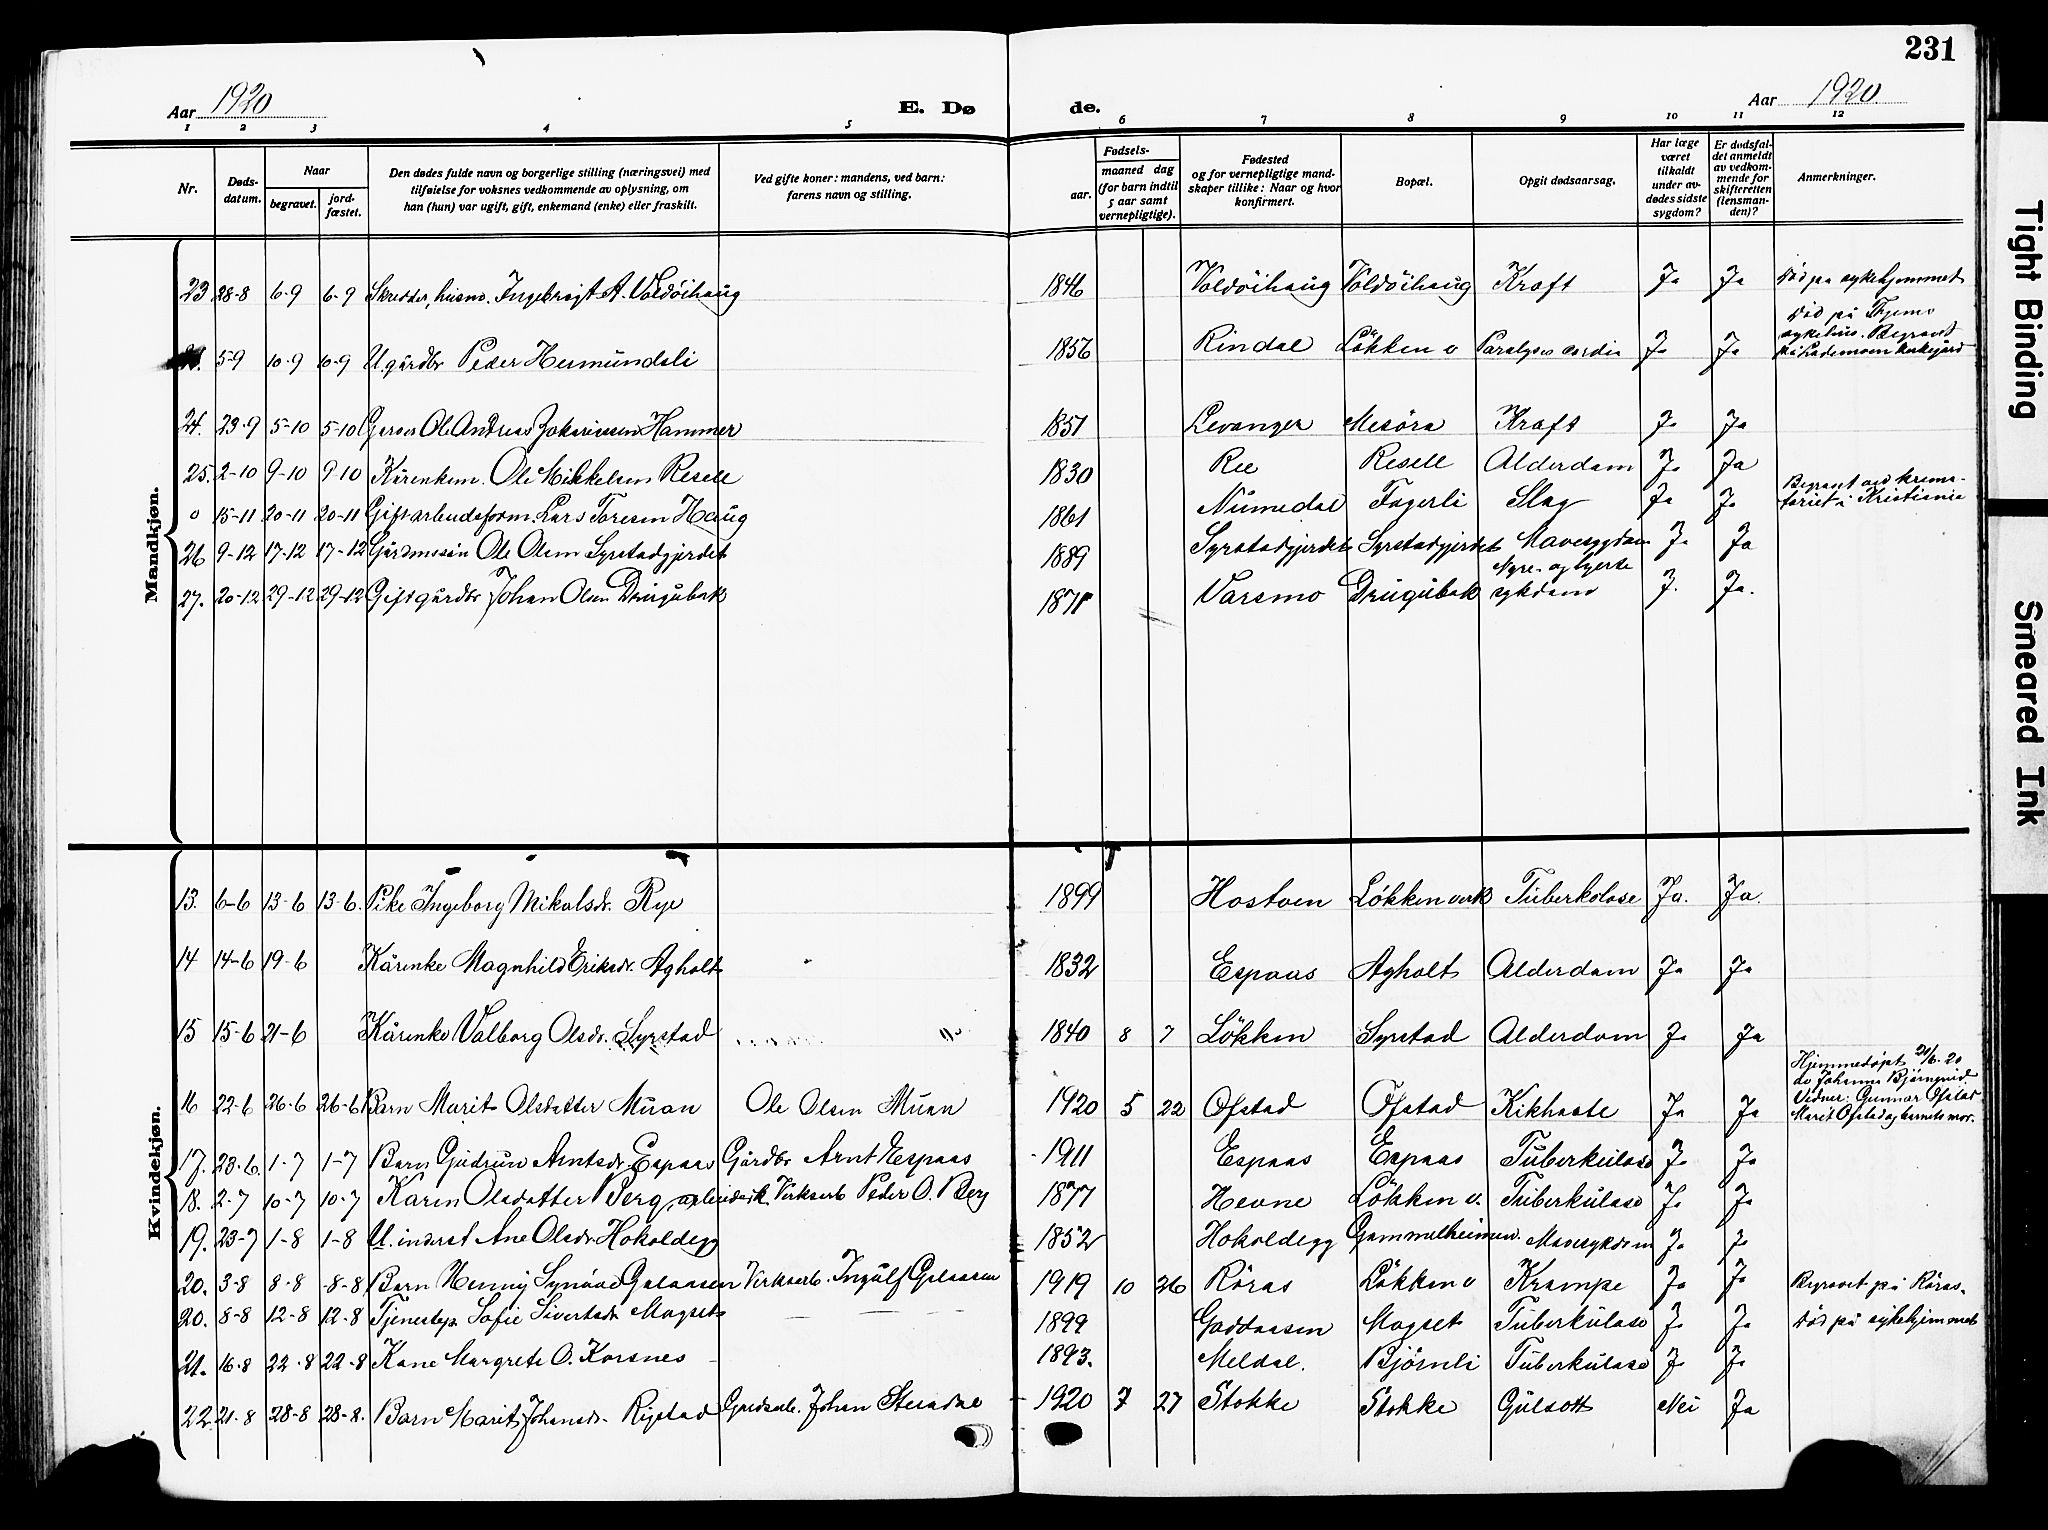 231
Aar 1920 E. Dø de. Aar 1920.
1 2 3 4 5 6 7 8 9 10 11 12
Nr. Døds-datum. Naar begravet. jord-fæstet. Den dødes fulde navn og borgerlige stilling (næringsvei) med tilføielse for voksnes vedkommende av oplysning, om han (hun) var ugift, gift, enkemand (enke) eller fraskilt. Ved gifte koner: mandens, ved barn: farens navn og stilling. Fødsels- aar. maaned dag (for barn indtil 5 aar samt vernepligtige). Fødested og for vernepligtige mandskaper tillike: Naar og hvor konfirmert. Bopæl. Opgit dødsaarsag. Har læge været tilkaldt under avdødes sidste sygdom? Er dødsfaldet anmeldt av vedkommende for skifteretten (lensmanden)? Anmerkninger.
Mandkjøn.
23 28-8 6-9 6-9 Skredder, husm. Ingebrigt A. Voldöihaug 1846 Voldöihaug Voldöihaug Kræft Ja Ja Död på sykehjemmet
5-9 10-9 10-9 U. gårdbr Peder Hermundsli 1856 Rindal Lökken v Paralysis cordis Ja Ja Död på Thjems sykehus. Begravet på Lademoen kirkegård
24. 23-9 5-10 5-10 Ole Andreas Zakariassen Hammer 1851 Levanger Mesöra Kræft Ja Ja
25. 2-10 9-10 9-10 Kårenkem. Ole Mikkelsen Resell 1830 Ree Resell Alderdom Ja Ja
0 15-11 20-11 20-11 Gift arbeidsform. Lars Toresen Haug 1861 Numedal Fagerli Slag Ja Ja Begravet ved krematoriet i Kristiania
26 9-12 17-12 17-12 Gårdmssön Ole Olsen Syrstadgjerdet 1889 Syrstadgjerdet Syrstadgjerdet Mavesygdom Ja Ja
27. 20-12 29-12 29-12 Gift gårdbr Johan Olsen Drugubak 1871 Varsmo Drugubak Nyre- og hjertesykdom J. Ja.
Kvindekjøn.
13. 6-6 13-6 13-6. Pike Ingeborg Mikalsdr. Rye 1899 Hostoen Løkken verk Tuberkolose Ja. Ja.
14 14-6 19-6 Kårenke Magnhild Eriksdr. Agholt 1832 Espaas Agholt Alderdom Ja Ja
15 15-6 21-6 Kårenke Valborg Olsdr. Syrstad 1840 8 7 Løkken Syrstad Alderdom Ja Ja
16 22-6 26-6 26-6 Barn Marit Olsdatter Muan Ole Olsen Muan 1920 5 22 Ofstad Ofstad Kikhoste Ja Ja Hjemmedöpt 20/6-20 av Johanna Björnqvid. Vidner: Gunnar Ofstad Marit Ofstad og barnets mor.
17. 28-6. 1-7 1-7 Barn Gudrun Arntsdr. Espaas Gårdbr Arnt Espaas 1911 Espaas Espaas Tuberkulose Ja Ja
18. 2-7 10-7 10-7 Karen Olsdatter Berg, Virksarb Peder O. Berg 1877 Hevne Lökken v. Tuberkulose Ja Ja
19. 23-7 1-8 1-8 U. inderst Ane Olsdr Hokoldegg 1852 Hokoldegg Gammelheimen. Mavesykdom Ja Ja
20. 3-8 8-8 -8-8 Barn Henny Synöve Galaasen Virksarb. Ingulf Galaasen 1919 10 26 Röras Lökken v Krampe Ja Ja Begravet på Röras.
20. 8-8 12-8 12-8 Tjenestep. Sofie Sivertsdr Mogset 1899 Gaddaasen Mogset Tuberkulose Ja Ja Död på sykehjemmet
21. 16-8 22-8 22-8 Kone Margrete O. Korsnes 1893. Meldal. Björnli Tuberkulose Ja Ja
22. 21-8 28-8 28-8. Barn Marit Johansdr. Rigstad Johan 1920 7 27 Stokke Stokke Gulsott Nei Ja
Tight Binding
Smeared Ink